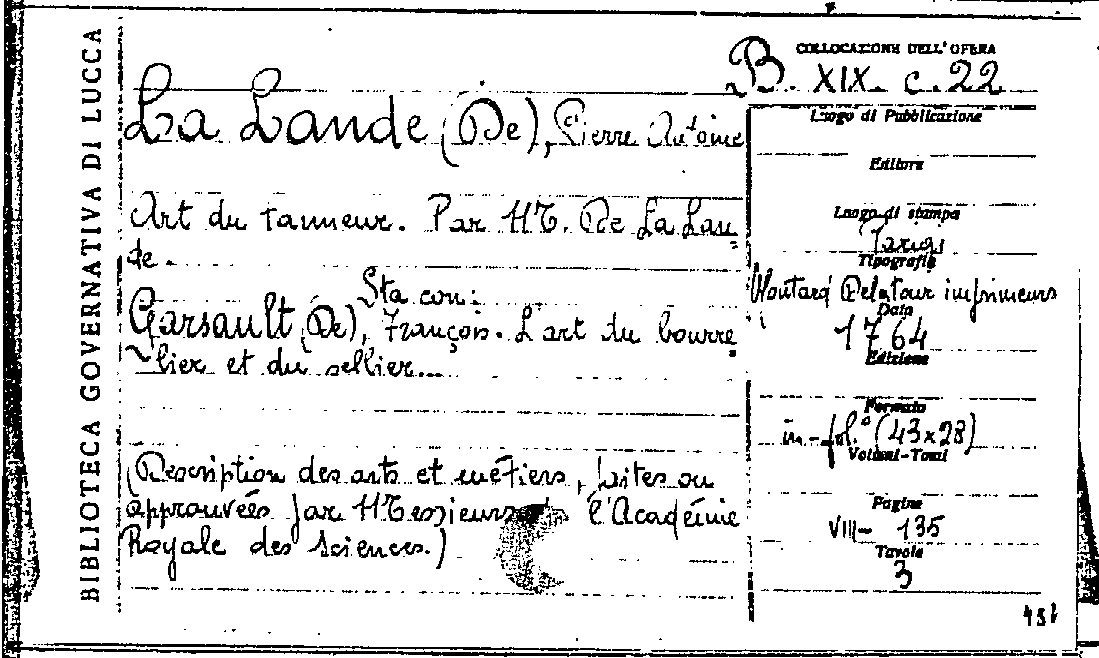 BIBLIOTECA GOVERNATIVA DI LUCCA
COLLOCAZIONE DELL'OPERA
B. XIX. c. 22
La Lande (De), Pierre Antoine
Art du tanneur. Par M. De La Lan=
de.
Sta con:
Garsault (De), François. L'art du bourre=
lier et du sellier...
(Description des arts et métiers, faites ou
approuvées par Messieurs de l'Académie
Royale des Sciences.)
Luogo di Pubblicazione
Editore
Luogo di stampa
Parigi
Tipografia
Moutard Delatour imprimeurs
Data
1764
Edizione
Formato
in-fol.° (43x28)
Volumi-Tomi
Pagine
VIII- 135
Tavole
3